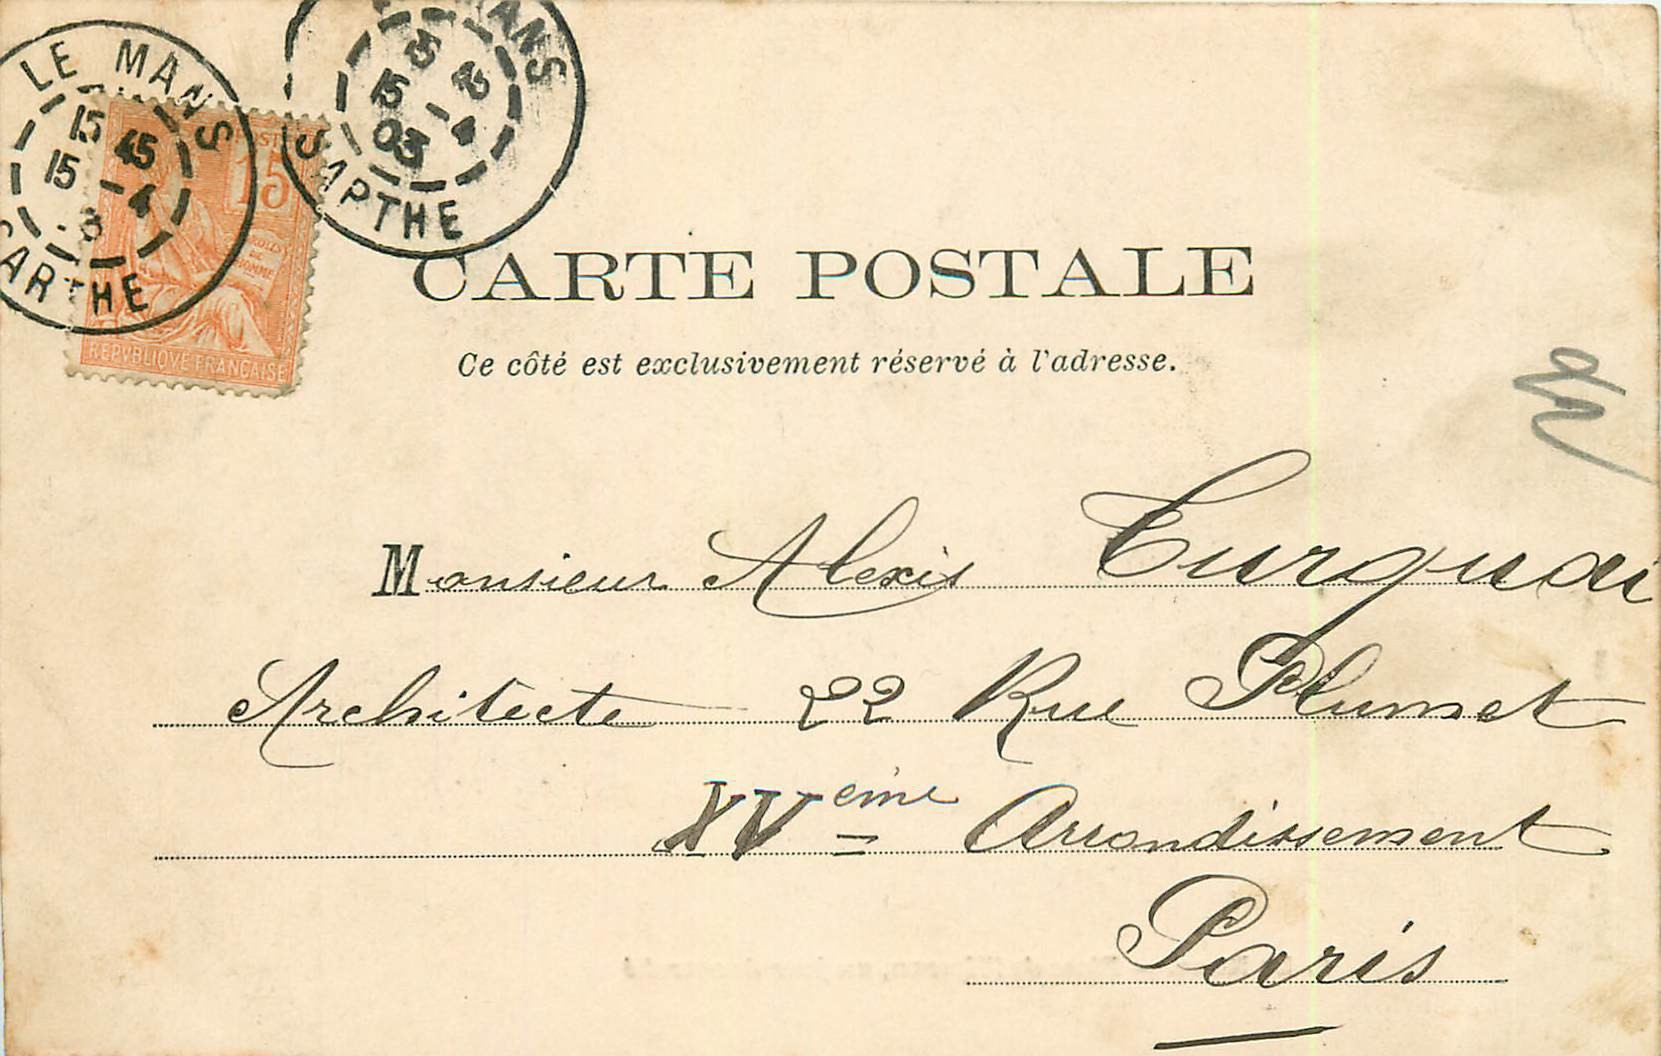 LE MANS
15 45
15 -4
3
SARTHE
MANS
15 -4
03
SARTHE
POSTES
15
DROITS
DE
L'HOMME
REPVBLIQVE FRANÇAISE
CARTE POSTALE
Ce côté est exclusivement réservé à l'adresse.
Monsieur Alexis Turquai
Architecte 22 Rue Plumet
XVème Arrondissement
Paris